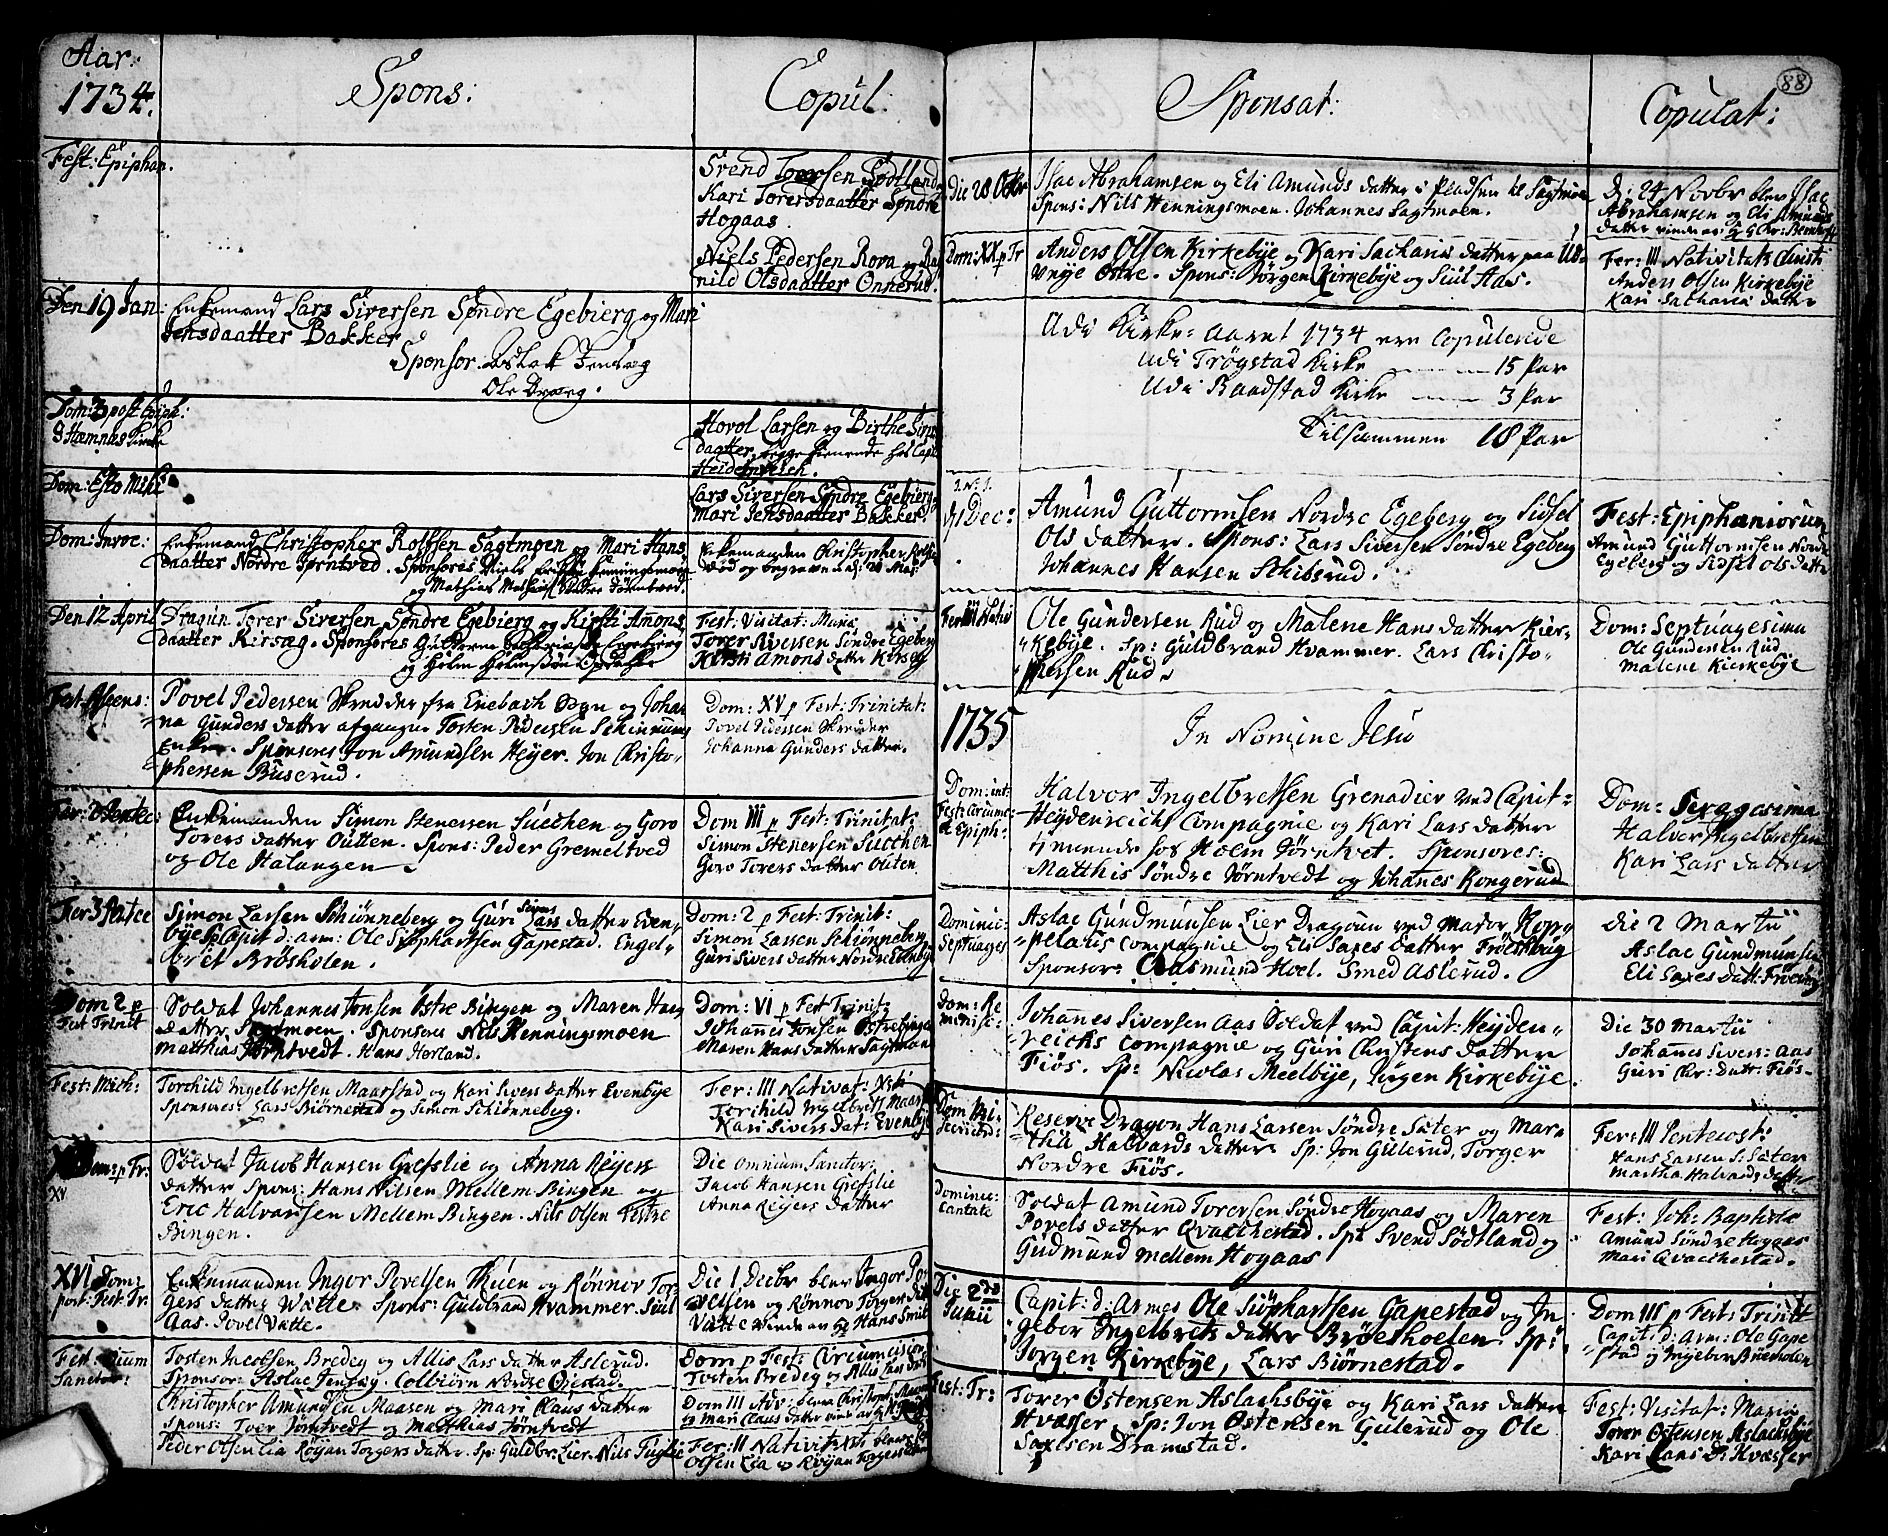 Aar:
1734.
Spons:
Copul:
Fest: Epiphan.
Svend Toersen Sødtland
Kari Torersdaatter Søndre
Hogaas.
Niels Pedersen Rova og
nild Olsdaatter Onnerud.
Den 19 Jan:
Enkemand Lars Siversen Søndre Egebierg og Mari
Jensdaatter Bakker
Sponsor. Aslak Jensæg
Ole
Dom: 3 post Epiph:
Hæmnæs Kirke
Horol Larsen og Birthe
daatter, begge tienende hos Capit
Heidenreich.
Dom: Esto Mihi
Lars Siversen Søndre Egebierg
Mari Jensdaatter Bakker.
Dom: Invoc:
Enkemand Christopher Rolfsen Sagtmoen og Mari Hans
daatter Nordre Tørntved. Sponsores Niels Henningsmoen
og Mathias Søndre Tørntved.
Enkemanden Christopher
død og begraven d: 28 Mai
Den 12 April
Dragun Torer Siversen Søndre Egebierg og Kirsti Amons
daatter Kirsæg. Sponsores Egebierg
og Holm
Fest: Visitat: Maria
Torer Siversen Søndre Egeberg
Kirsti Amons datter Kirsæg
Fest: Ascens:
Povel Pedersen Skredder fra Enebach Sogn og Johan
na Gunders datter afgangne Tosten Pedersen
Enke. Sponsores Jon Amundsen Heyer. Jon Christo
phersen Buserud.
Dom: XV p Fest: Trinitat:
Povel Pedersen Skredder
Johanna Gunders datter.
Fer: 2 Pentec:
Enkemanden Simon Stenersen Suchen og Goro
Torers datter Outten. Spons: Peder Gremeltved
og Ole Halangen
Dom III p Fest: Trinitat:
Simon Stenersen Suchen
Goro Torers datter Outen
Fer 3 Pentec
Simon Larsen Schiønneberg og Guri Sivers datter Even-
bye Sp: Capit d: arm: Ole Siophartsen Gapestad. Engel-
bret Brøsholen.
Dom: 2 p Fest: Trinit:
Simon Larsen Schiønneberg
Guri Sivers datter Nordre Evenby
Dom 2 p
Fest Trinit
Soldat Johannes Jonsen Østre Bingen og Maren Hans
datter Sagtmoen. Sponsores Nils Henningsmoen
Matthias Tørntvedt. Hans Herland.
Dom: VI p Fest Trinit:
Johannes Jonsen Østre Bingen
Maren Hans datter Sagtmoen
Fest: Mich:
Torchild Ingelbretsen Maarstad og Kari Sivers datter Evenbye
Sponsores: Lars Biørnestad og Simon Schiønnebug.
Fer: III Nativat: Xsti
Torchild Ingelbretz Maarst
Kari Sivers dat: Evenbye
Dom: p Tr:
XV
Soldat Jacob Hansen Grefslie og Anna Reyers
datter Spons: Hans Nilsen Mellem Bingen og
Eric Halvarsen Mellem Bingen. Nils Olsen Vestre
Bingen.
Die Omnium Sanctor:
Jacob Hansen Grefslie
Anna Reyers datter
XVI Dom:
post: Fest: Tr:
Enkemanden Ingor Povelsen Thuen og Rønnov Tor-
gers datter Watte. Spons: Guldbrand Hvammer. Siul
Aas. Povel Vatte.
Die 1 Decbr blev Ingor Po
velsen og Rønnov Torgers datt
Vatte viede av Hr Hans Smit
Fest: Omnium
Sanctor:
Tosten Jacobsen Bredeg og Allis Lars datter Aslerud.
Sponsor: Aslac Jensæg. Colbiørn Nordre Øiestad.
Dom p Fest: Circumcision
Tosten Bredeg og Allis Lars datt
Christopher Amundsen Maasen og Mari Claus datter
Spons: Toer Tørntvedt og Matthias Tørntvedt
Dom III Adv: blev Christoph: Amund
og Mari Claus datter viede av Hr
Peder Olsen Lia Røijan Torgers datter. Sp: Guldbr: Lier. Nils Fuglie
Fer: II Nativit: Xsti blev
Olsen Lia og Røijan Torgers datter
88
Sponsat:
Copulat:
Die 28 Octbr
Isac Abrahamsen og Eli Amunds datter i Pladsen til Sagtmoen
Spons: Nils Henningsmoen. Johannes Sagtmoen.
D: 24 Novbr blev Isac
Abrahamsen og Eli Amunds
datter viede av Hr G Chr: Berntsøn
Dom: XX p Tr
Anders Olsen Kirkebye og Kari Sacharia datter paa Ul-
vnye Østre. Spons: Jørgen Kirkebye og Siul Aas.
Fer: III Nativitat: Christi
Anders Olsen Kirkebye
Kari Sacharia datter
Udi Kirke: Aaret 1734 ere Copulerede
Udi Trøgstad Kirke 15 Par
Udi Baadstad Kirke 3 Par
Tilsammen 18 Par
J. N. J.
d: 1 Dec:
Amund Guttormsen Nordre Egeberg og Sidsel
Ols datter. Spons: Lars Siversen Søndre Egeberg
Johannes Hansen Schibsrud.
Fest: Epiphaniorum
Amund Guttormsen Nordre
Egeberg og Sidsel Ols datter
Fer III Nativ
Ole Gundersen Rud og Malene Hans datter Kier-
kebye. Sp: Guldbrand Hvammer. Lars Christo-
phersen Rud.
Dom: Septuagesima
Ole Gundersen Rud
Malene Kierkebye
1735
In Nomine Jesu
Dom: int:
Fest: Circumc:
& Epiph:
Halvor Ingelbretsen Grenadier ved Capit:
Heydenreichs Compagnie og Kari Lars datter
tienende hos Holm Tørntvet. Sponsores:
Matthis Søndre Tørntvedt og Johanes Kongerud
Dom: Sexagesima
Halver Ingelbretsen
Kari Lars datter
Dominic:
Septuages
Aslac Gundmunsen Lier Dragoun ved Major Kop-
pelaus Compagnie og Eli Saxes datter Frøeshaug
Sponsor: Aasmund Hoel. Smed Aslerud.
Die 2 Martii
Aslac Gundmunsen
Eli Saxes datt: Frøeshaug
Dom: Re
minisc:
Johannes Siversen Aas Soldat ved Capit: Heyden-
reichs Compagnie og Guri Christens datter
Fiøs. Sp: Nicolas Meelbye, Jørgen Kirkebye
Die 30 Martii
Johannes Sivers: Aas
Guri Chr: datr: Fiøs-
Dom: Mi-
sericord:
Reserve Dragon Hans Larsen Søndre Sæter og Mar-
tha Halvards datter Sp: Jon Gulerud, Torger
Nordre Fiøs.
Fer: III Pentecost:
Hans Larsen S: Sæter
Martha Halvards datter
Dominic:
Cantate
Soldat Amund Torersen Søndre Hogaas og Maren
Povels datter Qvacchestad. Sp: Svend Sødtland og
Gudmund mellem Hogaas
Fest: Joh: Baptistæ
Amund Søndre Hogaas
Mari Qvacchestad.
Die 2do
Julii
Capit: d: Armes Ole Siophartsen Gapestad og In
geber Ingelbrets datter Brøesholen. Sp:
Jorgen Kirkebye, Lars Biørnestad.
Dom III p Fest: Trinit
Capit: d: Arm: Ole Gape
stad og Ingeber Brøesholen
Fest: Tr:
Torer Østensen Aslachsbye og Kari Lars datter
Hvæsser Sp: Jon Østensen Gulerud og Ole
Saxesen Dramstad.
Fest: Visitat: Mariæ
Torer Østensen Aslachsbye
Kari Lars D: Hvæsser